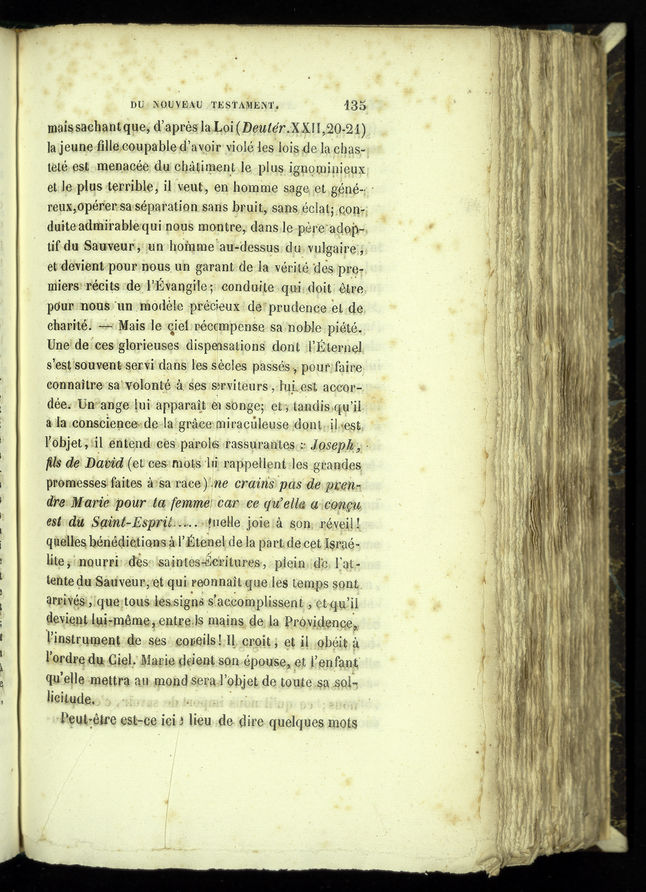 DU NOUVEAU TESTAMENT. 135
mais sachant que, d'après la Loi (Deutér. XXII, 20-21)
la jeune fille coupable d'avoir violé les lois de la chas-
teté est menacée du châtiment le plus ignominieux
et le plus terrible, il veut, en homme sage et géné-
reux, opérer sa séparation sans bruit, sans éclat; con-
duite admirable qui nous montre, dans le père adop-
tif du Sauveur, un homme au-dessus du vulgaire,
et devient pour nous un garant de la vérité des pre-
miers récits de l'Évangile; conduite qui doit être
pour nous un modèle précieux de prudence et de
charité. — Mais le ciel récompense sa noble piété.
Une de ces glorieuses dispensations dont l'Éternel
s'est souvent servi dans les siècles passés, pour faire
connaître sa volonté à ses serviteurs, lui est accor-
dée. Un ange lui apparaît en songe; et, tandis qu'il
a la conscience de la grâce miraculeuse dont il est
l'objet, il entend ces paroles rassurantes : Joseph,
fils de David (et ces mots lui rappellent les grandes
promesses faites à sa race) ne crains pas de pren-
dre Marie pour ta femme car ce qu'elle a conçu
est du Saint-Esprit.... quelle joie à son réveil!
quelles bénédictions à l'Étenel de la part de cet Israé-
lite, nourri des saintes-écritures, plein de l'at-
tente du Sauveur, et qui reonnaît que les temps sont
arrivés, que tous les signs s'accomplissent, et qu'il
devient lui-même, entre ls mains de la Providence,
l'instrument de ses coseils! Il croit, et il obéit à
l'ordre du Ciel. Marie deient son épouse, et l'enfant
qu'elle mettra au mond sera l'objet de toute sa sol-
licitude.
Peut-être est-ce ici lieu de dire quelques mots